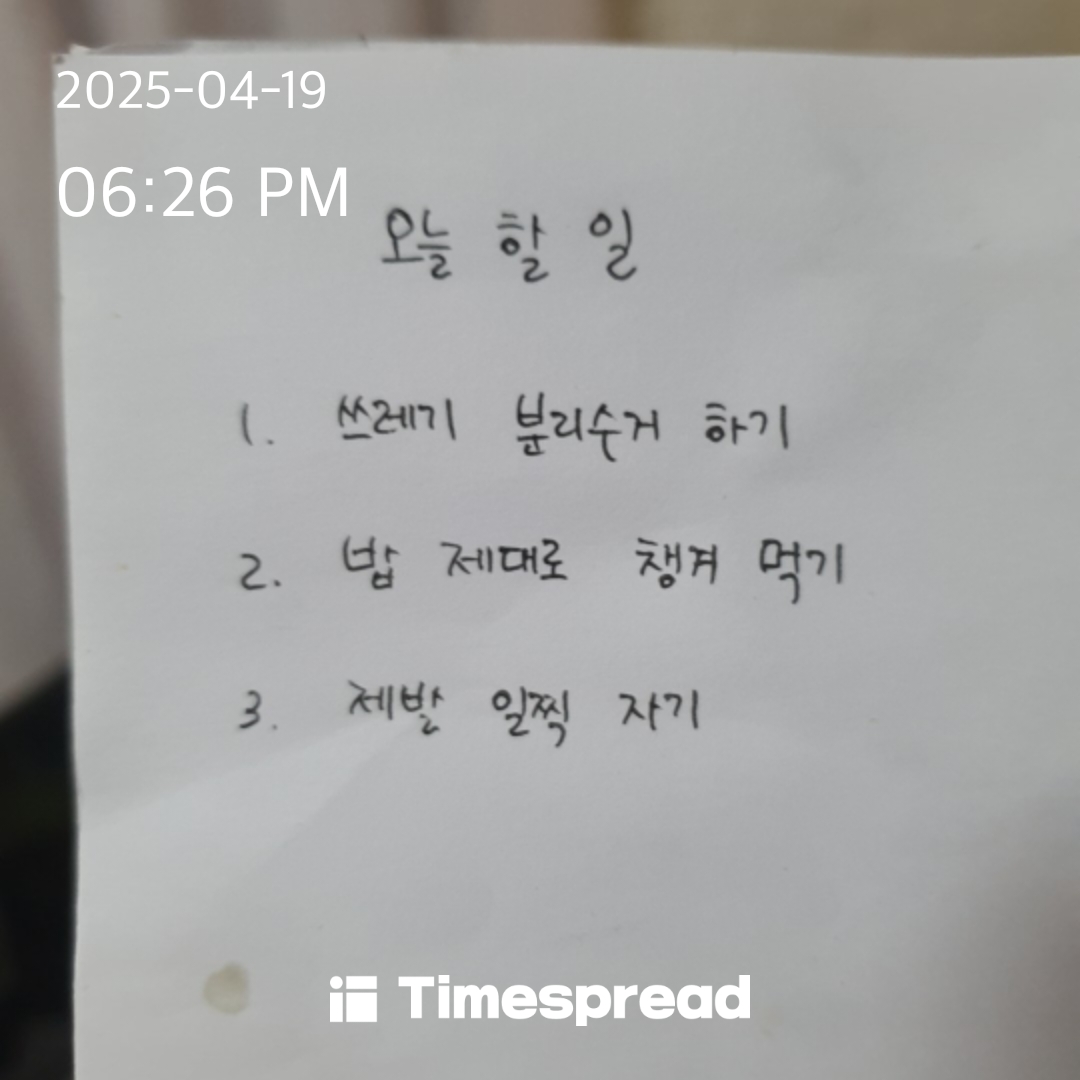 2025-04-19
06:26 PM
오늘 할 일
1. 쓰레기 분리수거 하기
2. 밥 제대로 챙겨 먹기
3. 제발 일찍 자기
Timespread